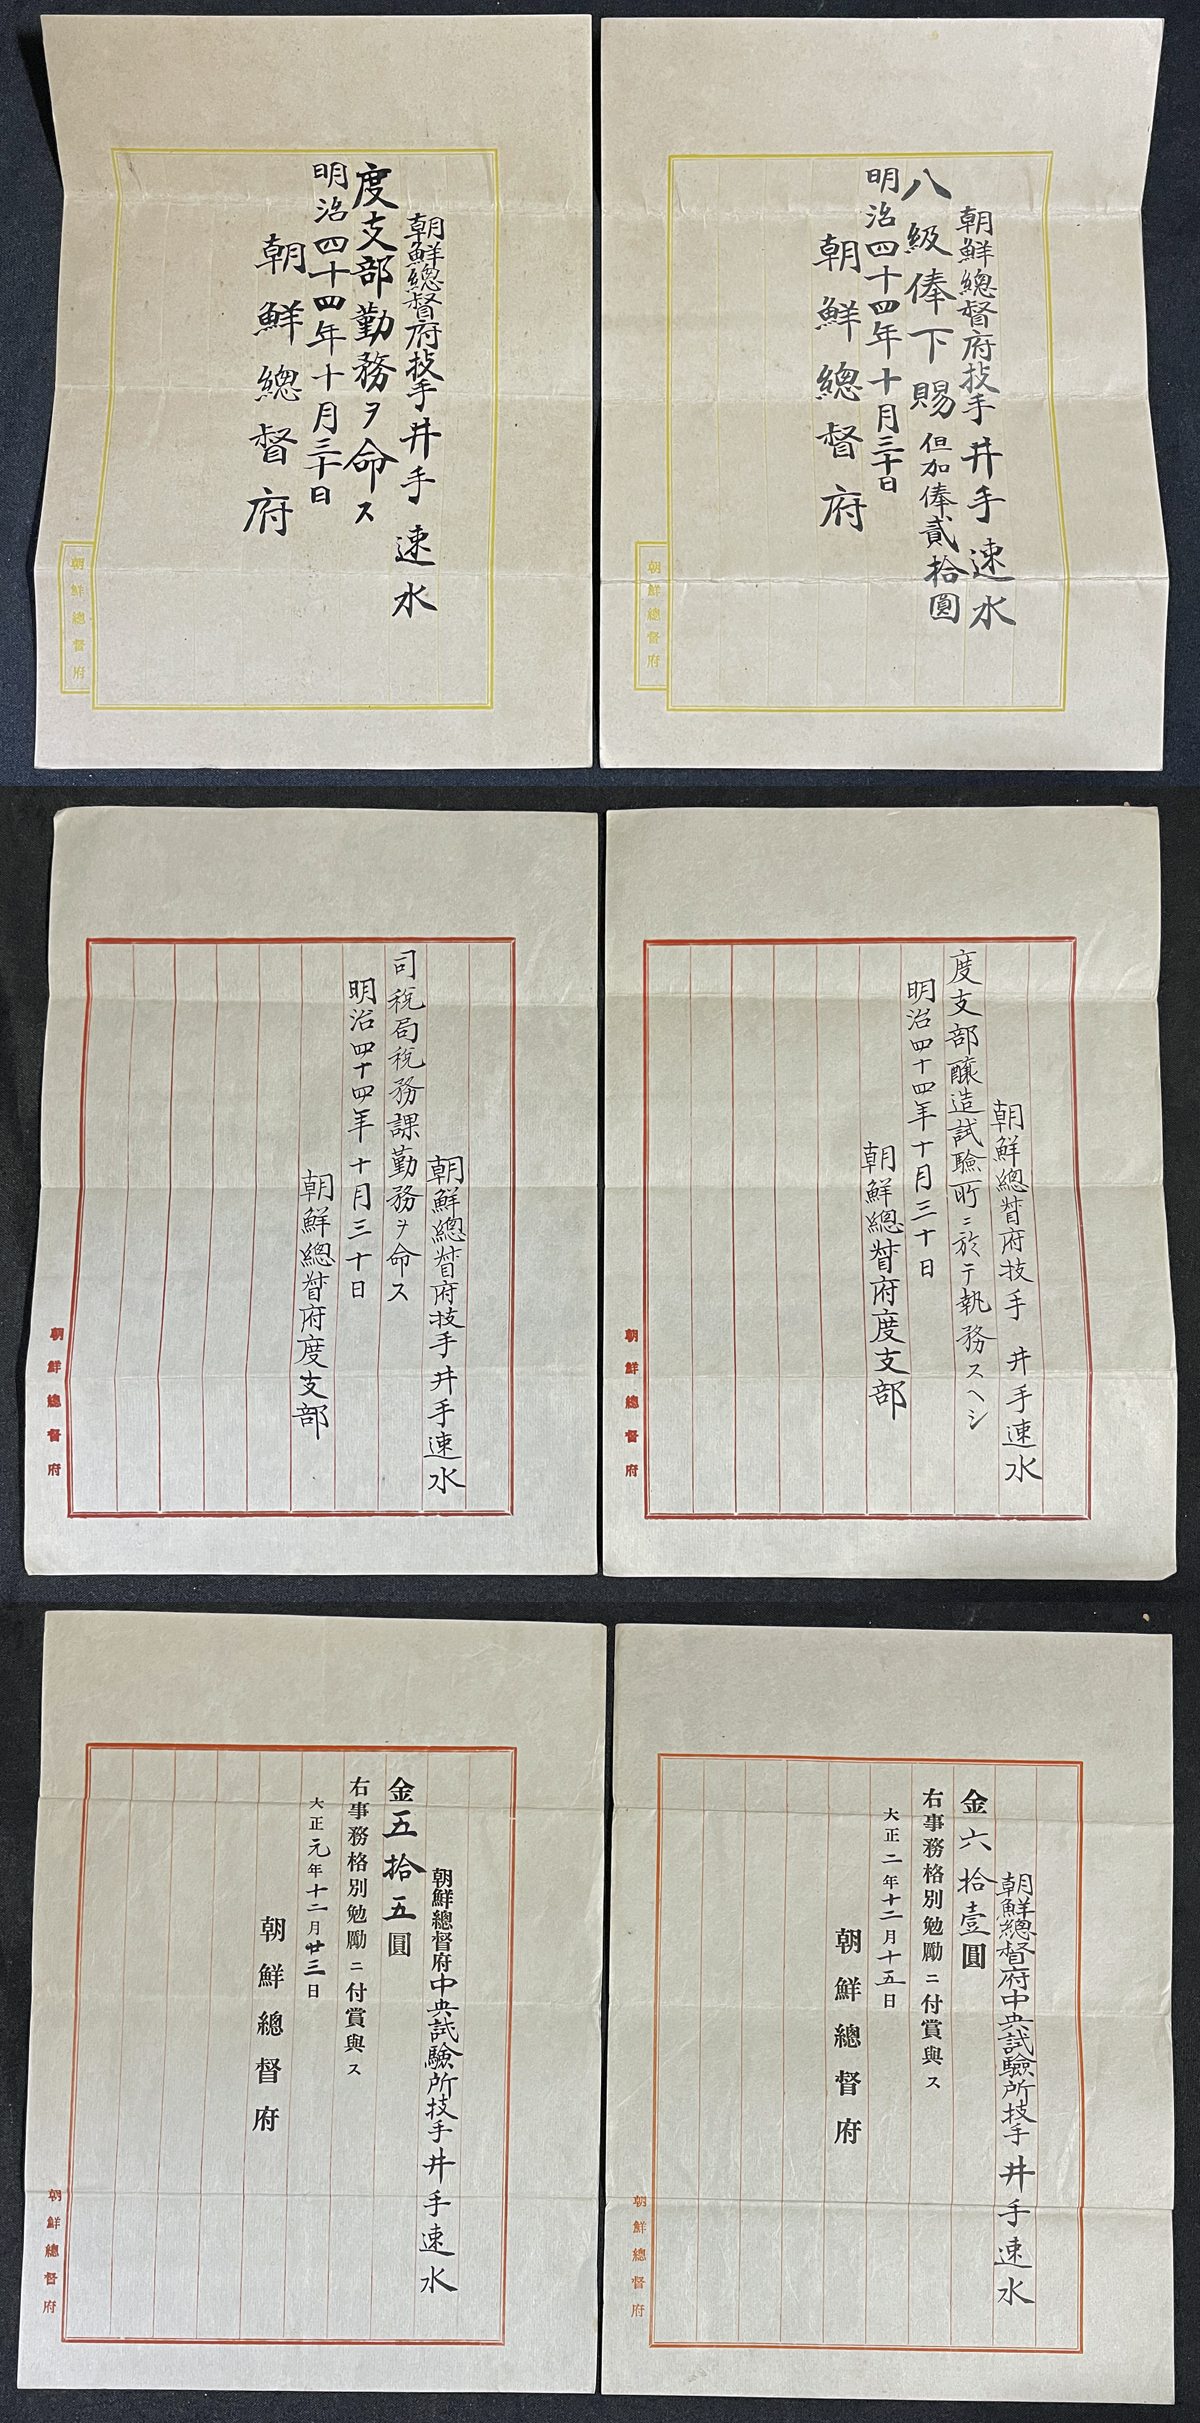 朝鮮總督府技手井手速水
八級俸下賜但加俸貳拾圓
明治四十四年十月三十日
朝鮮總督府
朝鮮總督府
朝鮮總督府技手井手速水
度支部勤務ヲ命ス
明治四十四年十月三十日
朝鮮總督府
朝鮮總督府
朝鮮總督府技手 井手速水
度支部釀造試驗所ニ於テ執務スヘシ
明治四十四年十月三十日
朝鮮總督府度支部
朝鮮總督府
朝鮮總督府技手井手速水
司稅局稅務課勤務ヲ命ス
明治四十四年十月三十日
朝鮮總督府度支部
朝鮮總督府
朝鮮總督府中央試驗所技手井手速水
金六拾壹圓
右事務格別勉勵ニ付賞與ス
大正二年十二月十五日
朝鮮總督府
朝鮮總督府
朝鮮總督府中央試驗所技手井手速水
金五拾五圓
右事務格別勉勵ニ付賞與ス
大正元年十二月廿三日
朝鮮總督府
朝鮮總督府